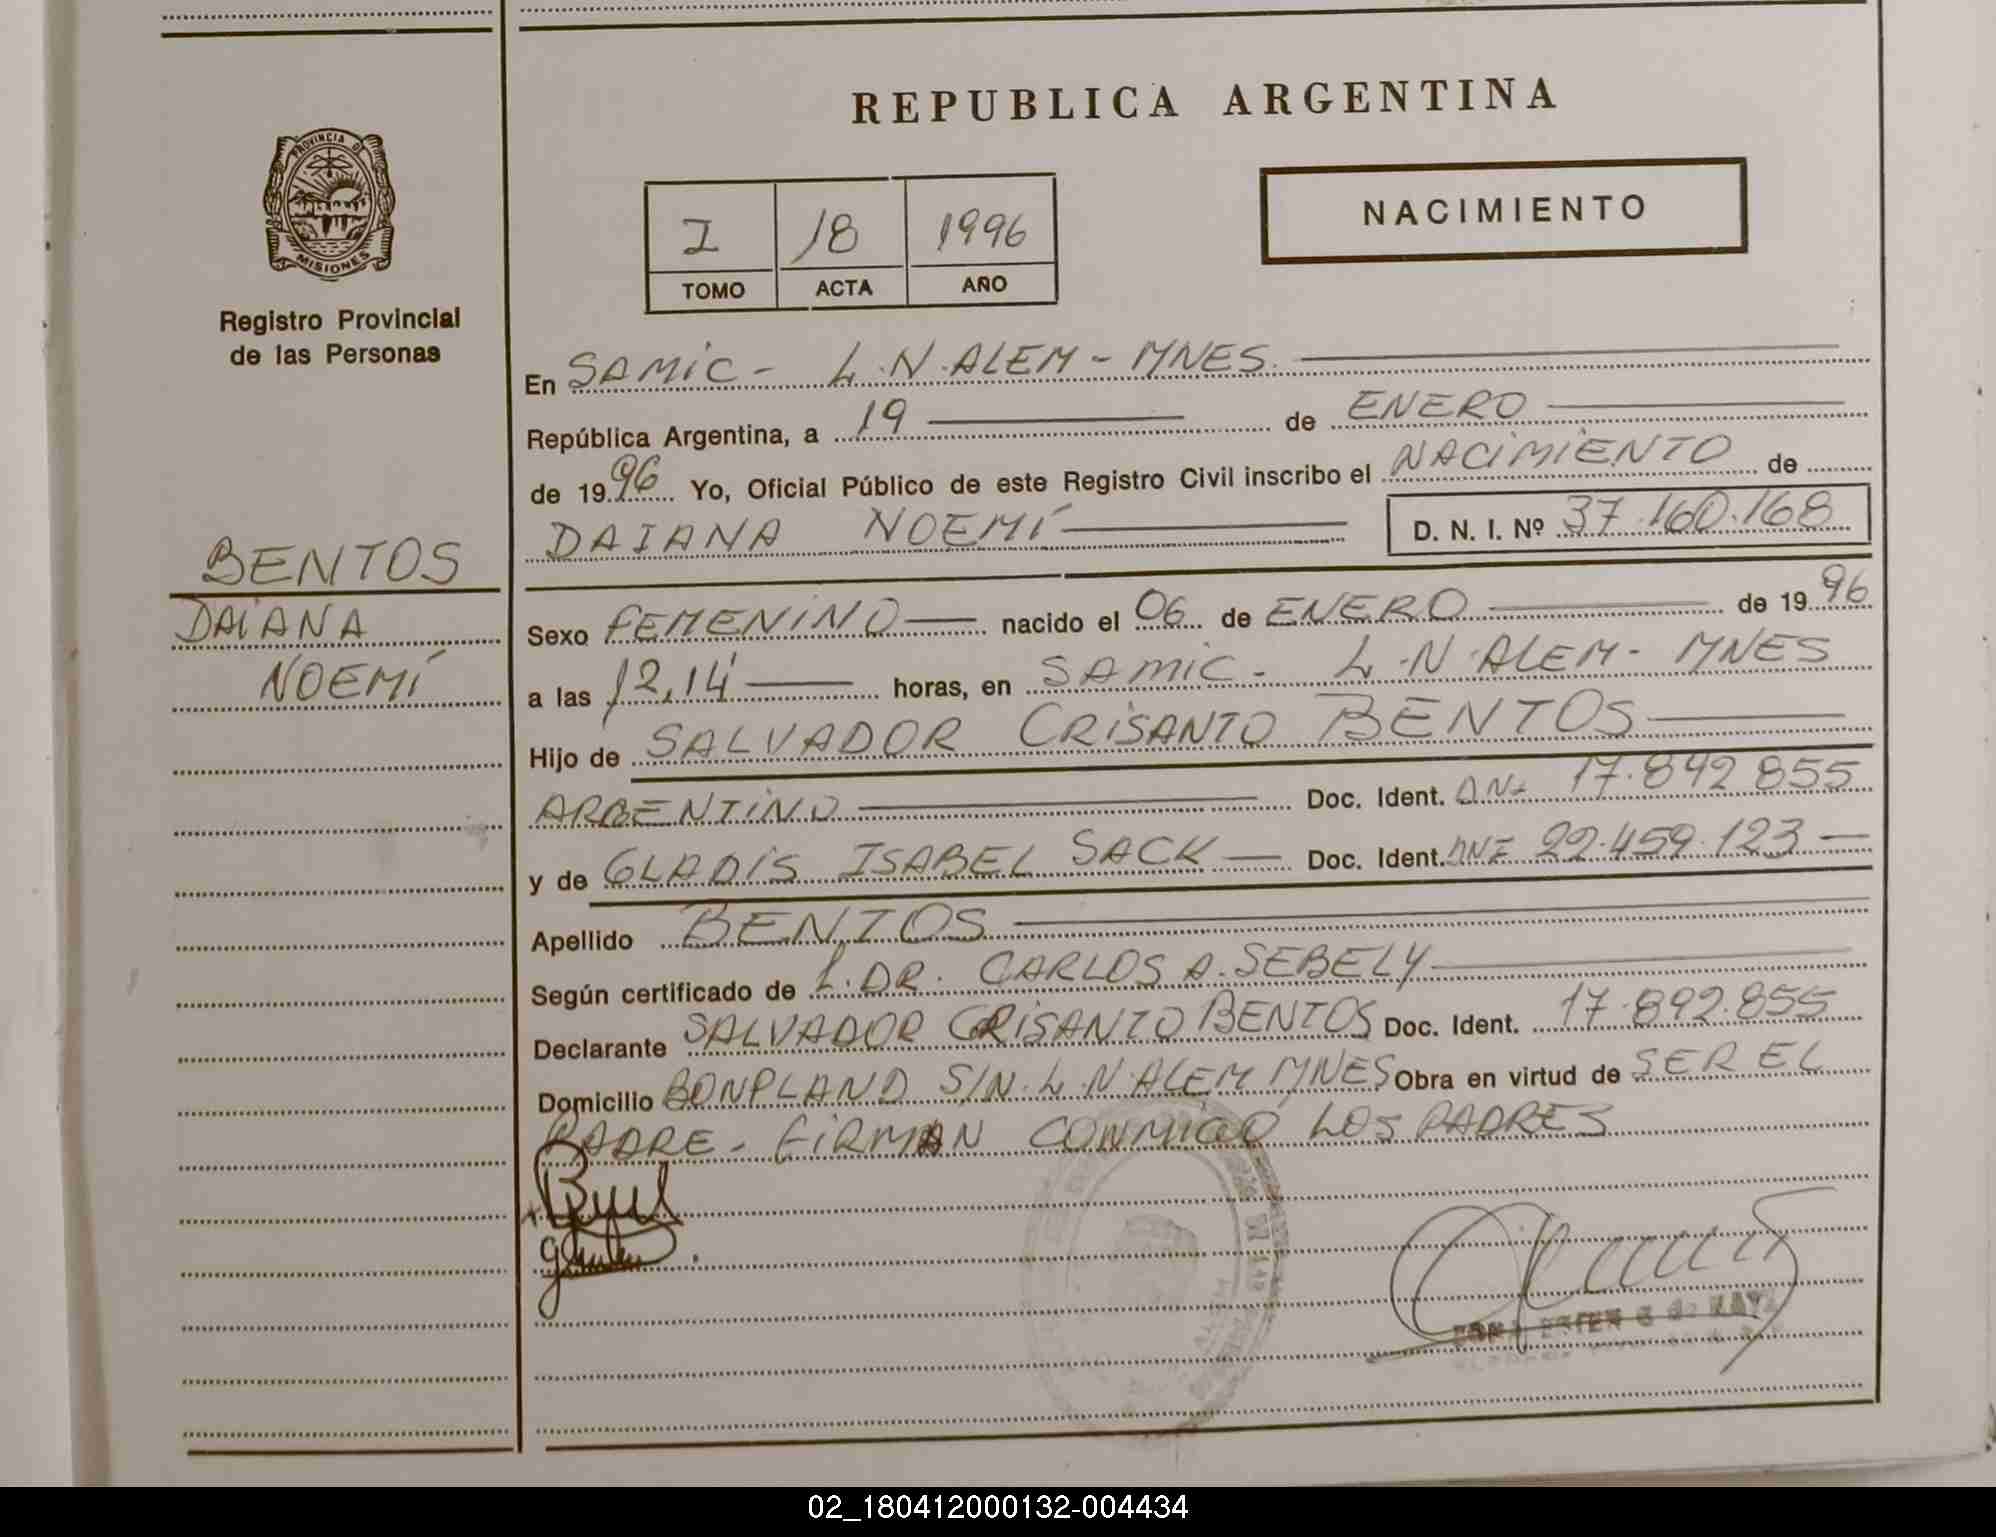 REPUBLICA ARGENTINA
PROVINCIA D
MISIONES
Registro Provincial
de las Personas
I 18 1996
TOMO ACTA AÑO
NACIMIENTO
En SAMIC - L.N.ALEM - MNES.
República Argentina, a 19 de ENERO
de 1996 Yo, Oficial Público de este Registro Civil inscribo el NACIMIENTO de
DAIANA NOEMÍ D. N. I. Nº 37.160.168
BENTOS
DAIANA
NOEMÍ
Sexo FEMENINO nacido el 06 de ENERO de 1996
a las 12,14 horas, en SAMIC - L.N.ALEM - MNES
Hijo de SALVADOR CRISANTO BENTOS
ARGENTINO Doc. Ident. DNI 17.892 855
y de GLADIS ISABEL SACK Doc. Ident. DNI 22.459.123
Apellido BENTOS
Según certificado de L. DR. CARLOS A. SEBELY
Declarante SALVADOR CRISANTO BENTOS Doc. Ident. 17.892.855
Domicilio BONPLAND S/N. L.N.ALEM MNES Obra en virtud de SER EL
PADRE - FIRMAN CONMIGO LOS PADRES
ESTER G de
02_180412000132-004434